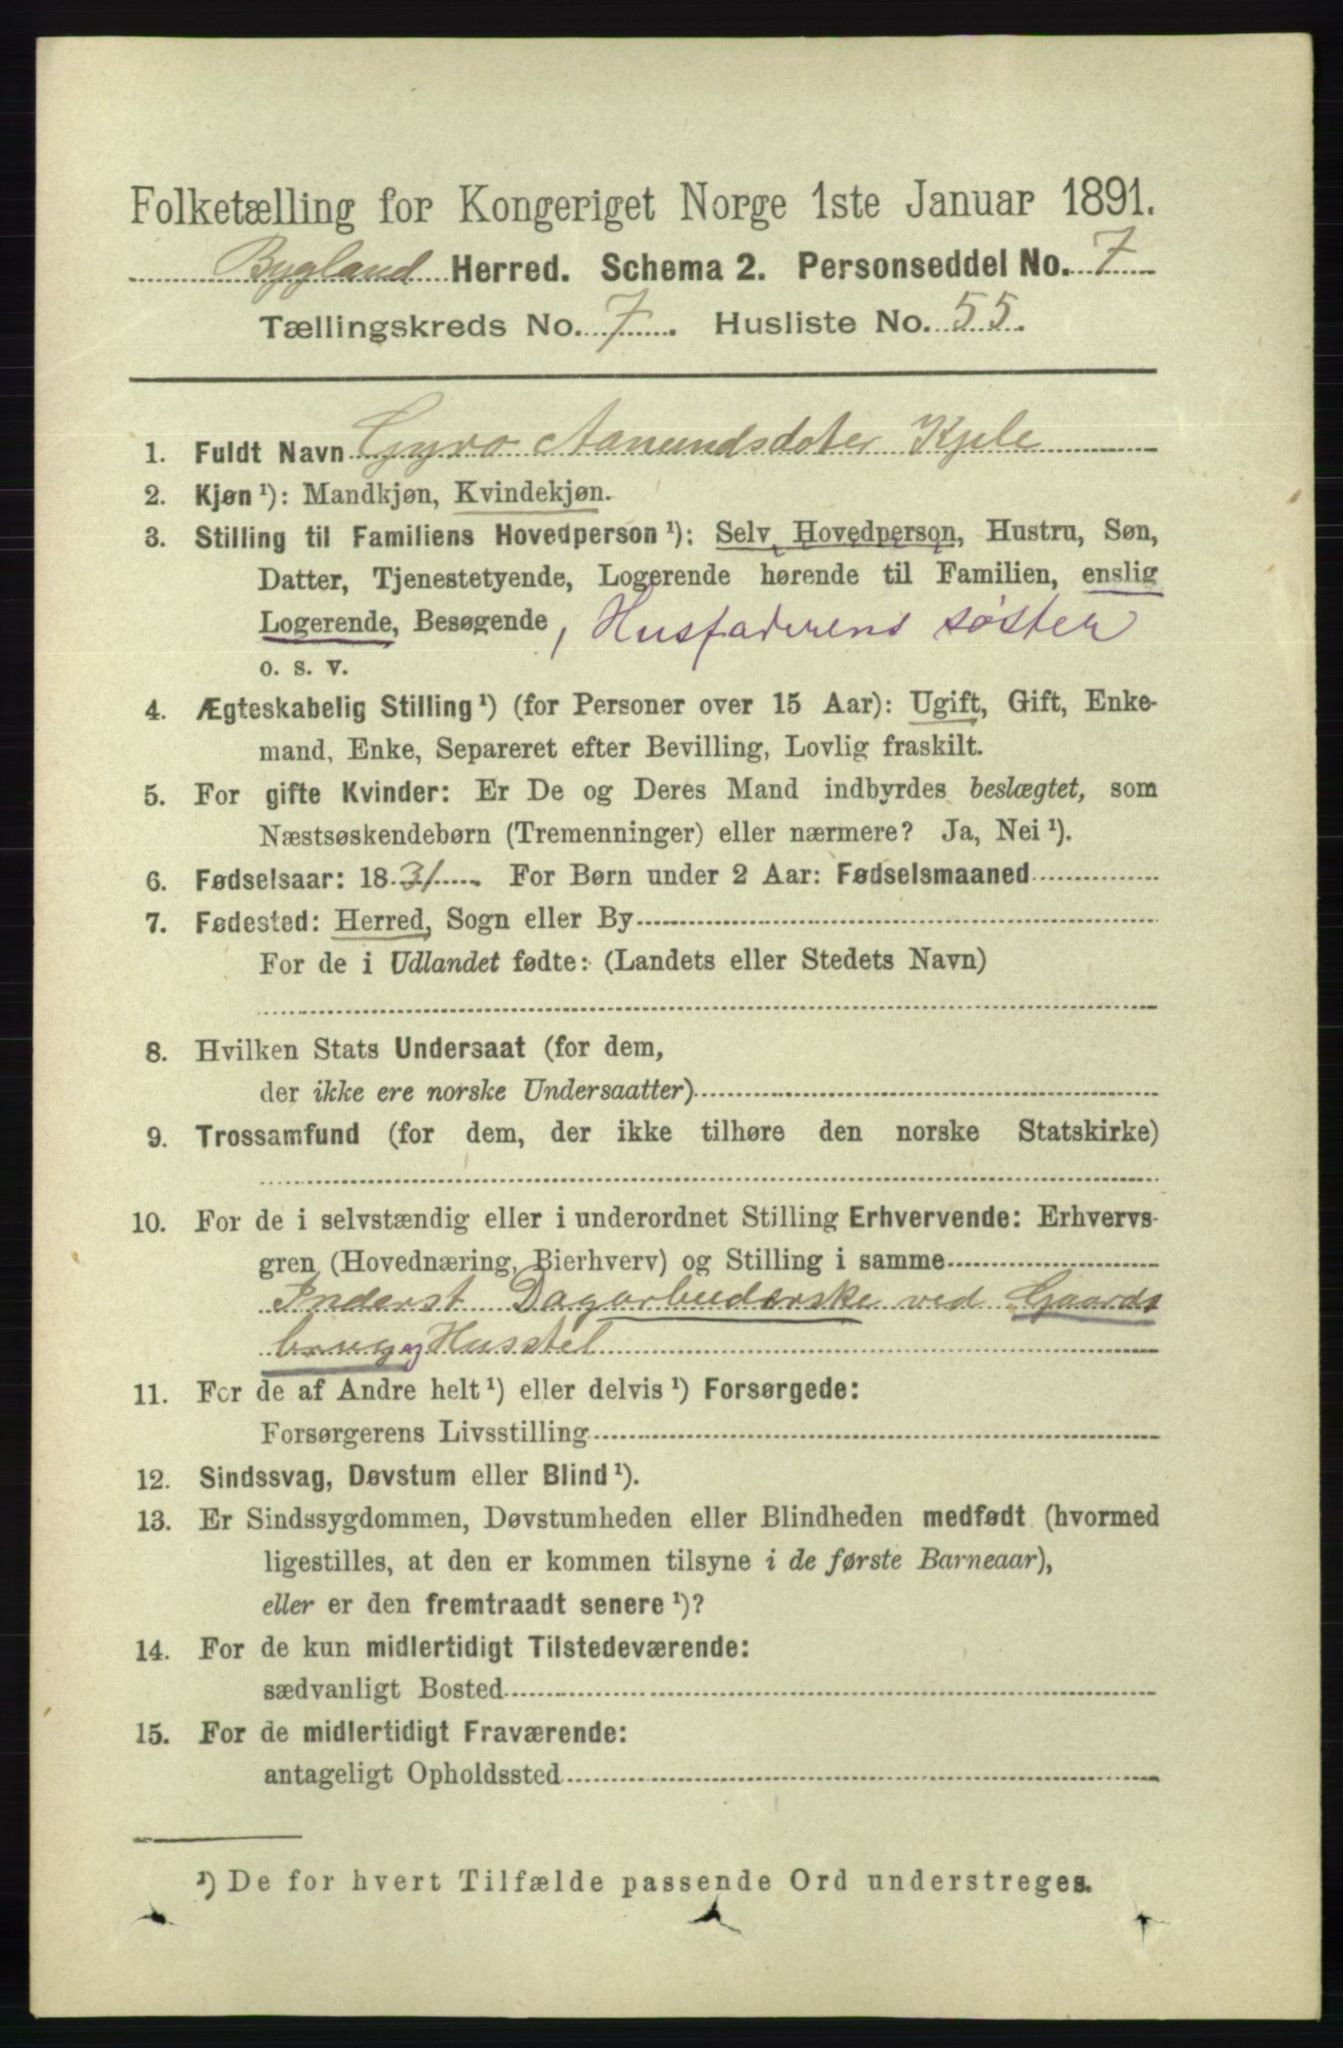 Folketælling for Kongeriget Norge 1ste Januar 1891.
Bygland Herred. Schema 2. Personseddel No. 7
Tællingskreds No. 7. Husliste No. 55.
1. Fuldt Navn Gyro Aanundsdoter Kjele
2. Kjøn ¹): Mandkjøn, Kvindekjøn.
3. Stilling til Familiens Hovedperson ¹): Selv Hovedperson, Hustru, Søn,
Datter, Tjenestetyende, Logerende hørende til Familien, enslig
Logerende, Besøgende, Husfaderens søster
o. s. v.
4. Ægteskabelig Stilling ¹) (for Personer over 15 Aar): Ugift, Gift, Enke-
mand, Enke, Separeret efter Bevilling, Lovlig fraskilt.
5. For gifte Kvinder: Er De og Deres Mand indbyrdes beslægtet, som
Næstsøskendebørn (Tremenninger) eller nærmere? Ja, Nei ¹).
6. Fødselsaar: 1831. For Børn under 2 Aar: Fødselsmaaned
7. Fødested: Herred, Sogn eller By
For de i Udlandet fødte: (Landets eller Stedets Navn)
8. Hvilken Stats Undersaat (for dem,
der ikke ere norske Undersaatter)
9. Trossamfund (for dem, der ikke tilhøre den norske Statskirke)
10. For de i selvstændig eller i underordnet Stilling Erhvervende: Erhvervs-
gren (Hovednæring, Bierhverv) og Stilling i samme
Inderst Dagarbeiderske ved Gaards
brug og Husstel
11. For de af Andre helt ¹) eller delvis ¹) Forsørgede:
Forsørgerens Livsstilling
12. Sindssvag, Døvstum eller Blind ¹).
13. Er Sindssygdommen, Døvstumheden eller Blindheden medfødt (hvormed
ligestilles, at den er kommen tilsyne i de første Barneaar),
eller er den fremtraadt senere ¹)?
14. For de kun midlertidigt Tilstedeværende:
sædvanligt Bosted
15. For de midlertidigt Fraværende:
antageligt Opholdssted
¹) De for hvert Tilfælde passende Ord understreges.